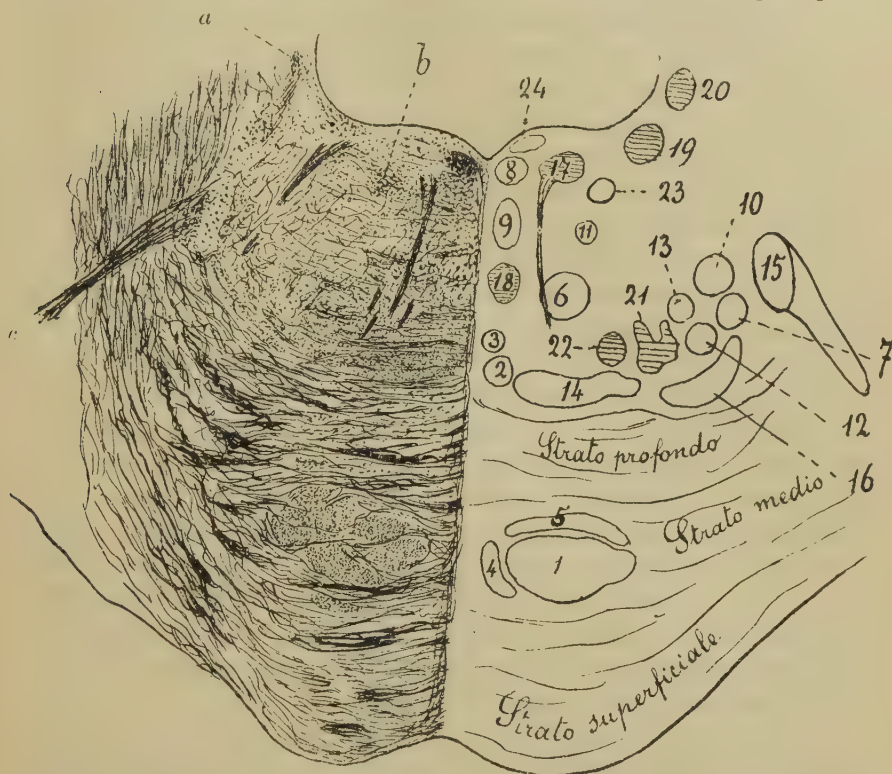 a
b
24
20
8
17
19
23
9
11
10
13
15
18
6
21
c
3
22
7
2
14
12
Strato profondo
16
Strato medio
5
4
1
Strato superficiale.